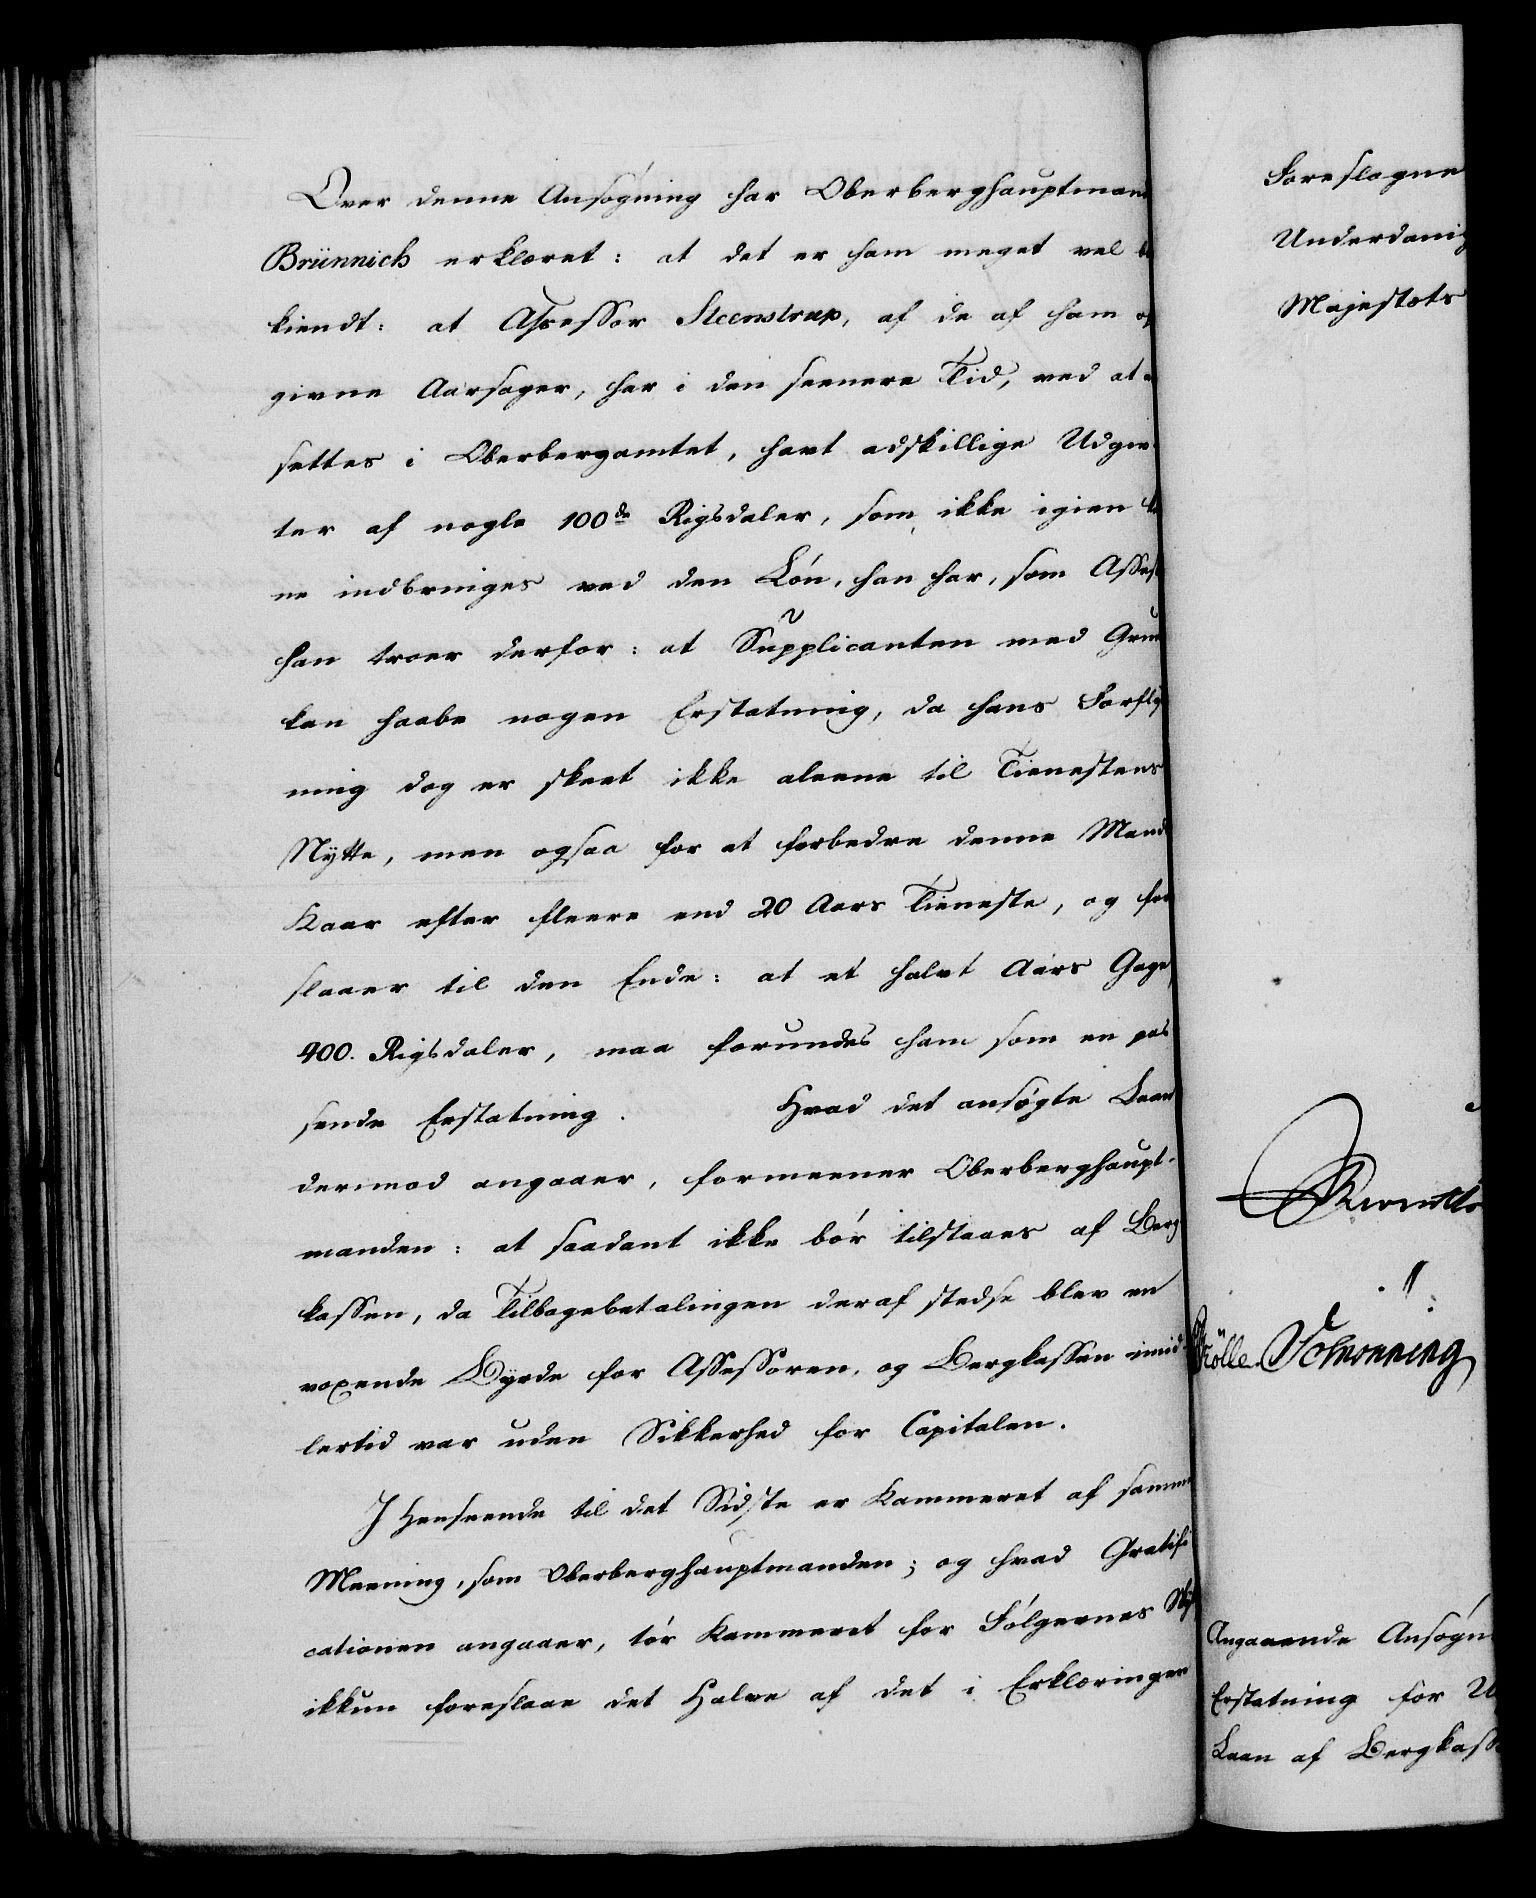 Over denne Ansøgning har Oberberghauptmand
Brünnich erklæret: at det er ham meget vel be
kiendt: at Assessor Steenstrup, af de af ham op
givne Aarsager, har i den seenere Tid, ved at an
settes i Oberbergamtet, havt adskillige Udgiv
ter af nogle 100de Rigsdaler, som ikke igien kun
ne indbringes ved den Løn, han har, som Assess
han troer derfor: at Supplicanten med Grund
kan haabe nogen Erstatning, da hans Forflyt
ning dog er skeet ikke aleene til Tienestens
Nytte, men ogsaa for at forbedre denne Mands
Kaar efter fleere end 20 Aars Tieneste, og fore
slaaer til den Ende: at et halvt Aars Gage
400. Rigsdaler, maa forundes ham som en pas
sende Erstatning. Hvad det ansøgte Laan
derimod angaaer, formeener Oberberghaupt-
manden: at saadant ikke bør tilstaaes af Berg
kassen, da Tilbagebetalingen deraf stedse blev en
voxende Byrde for Assessoren, og Bergkassen imid-
lertid var uden Sikkerhed for Capitalen.
I Henseende til det Sidste er Kammeret af samme
Meening, som Oberberghauptmanden; og hvad Gratifi
cationen angaaer, tør Kammeret for Følgernes Skyld
ikkun foreslaae det Halve af det i Erklæringen
Foreslagne
Underdanig
Majestæts
Schønning
Angaaende Ansøgn
Erstatning for U
Laan af Bergkass